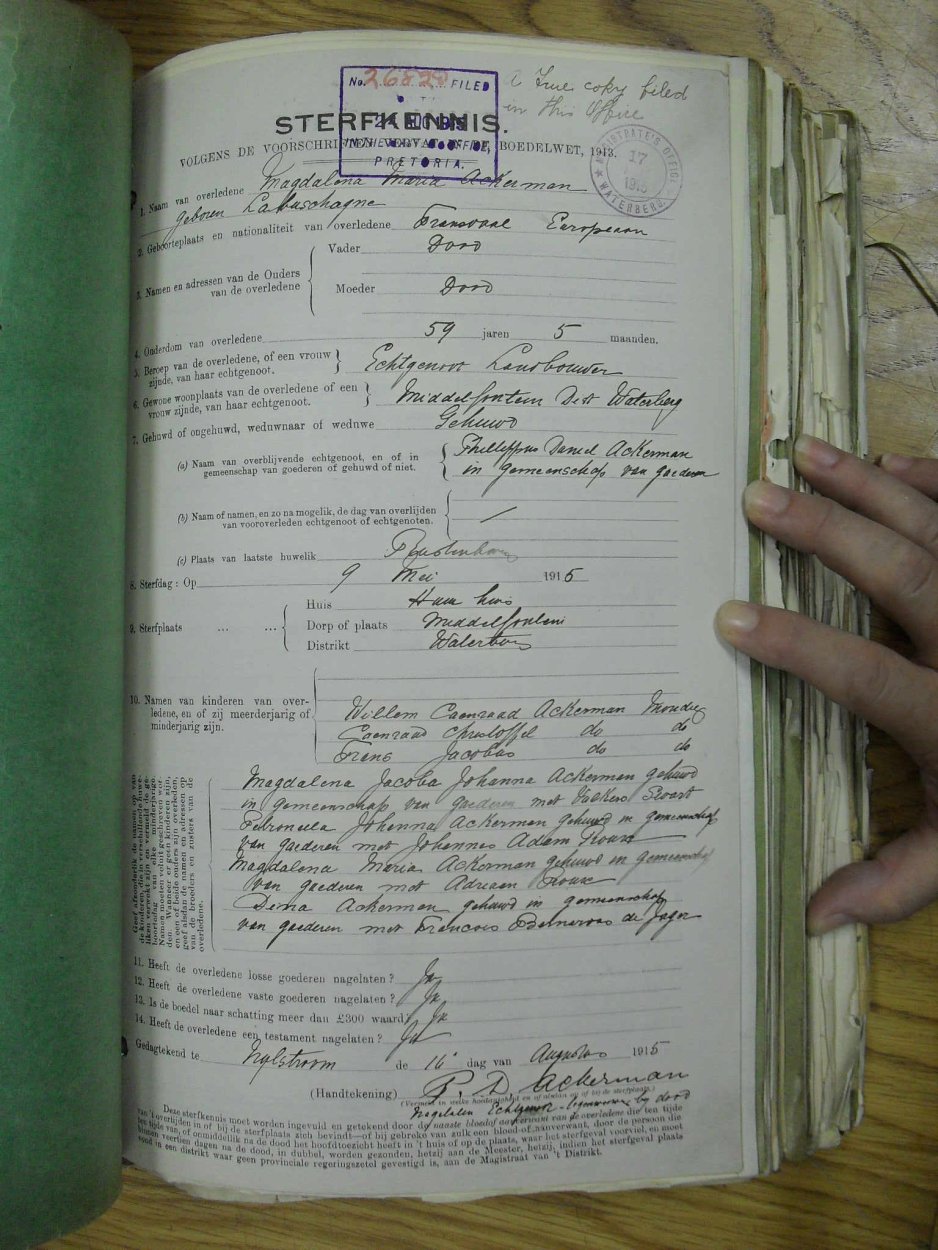 No. 26820 FILED
A True copy filed
in this Office
STERFKENNIS.
PRETORIA.
MAGISTRATE'S OFFICE
17
1915
WATERBERG.
VOLGENS DE VOORSCHRIFTEN VERVAT IN DE BOEDELWET, 1913.
1. Naam van overledene Magdalena Maria Ackerman
geboren Labuschagne
2. Geboorteplaats en nationaliteit van overledene Transvaal European
3. Namen en adressen van de Ouders van de overledene
Vader Dood
Moeder Dood
4. Ouderdom van overledene 59 jaren 5 maanden.
5. Beroep van de overledene, of een vrouw
zijnde, van haar echtgenoot. Echtgenoot Landbouwer
6. Gewone woonplaats van de overledene of een
vrouw zijnde, van haar echtgenoot. Middelfontein Dist Waterberg
7. Gehuwd of ongehuwd, weduwnaar of weduwe Gehuwd
(a) Naam van overblijvende echtgenoot, en of in
gemeenschap van goederen of gehuwd of niet.
Phillippus Daniel Ackerman
in gemeenschap van goederen
(b) Naam of namen, en zo na mogelik, de dag van overlijden
van vooroverleden echtgenoot of echtgenoten.
(c) Plaats van laatste huwelik Rustenburg
8. Sterfdag: Op 9 Mei 1915
9. Sterfplaats ... ...
Huis Haar huis
Dorp of plaats Middelfontein
Distrikt Waterberg
10. Namen van kinderen van over-
ledene, en of zij meerderjarig of
minderjarig zijn.
Willem Coenraad Ackerman Mondig
Coenraad Christoffel do do
Frans Jacobus do do
Geef afzonderlik de namen op van
de kinderen, die in verschillende huwe-
liken verwekt zijn en vermeld de ge-
boortedag van elke minderjarige.
Namen moeten voluit geschreven wor-
den. Wanneer er geen kinderen zijn,
en een of beide ouders zijn overleden,
geef alsdan de namen en adressen op
van de broeders en zusters van de
overledene.
Magdalena Jacoba Johanna Ackerman gehuwd
in gemeenschap van goederen met
Petronella Johanna Ackerman gehuwd in gemeenschap
van goederen met Johannes Adam
Magdalena Maria Ackerman gehuwd in gemeenschap
van goederen met Adriaan
Dina Ackerman gehuwd in gemeenschap
van goederen met Francois de Jager
11. Heeft de overledene losse goederen nagelaten? Ja
12. Heeft de overledene vaste goederen nagelaten? Ja
13. Is de boedel naar schatting meer dan £300 waard? Ja
14. Heeft de overledene een testament nagelaten? Ja
Gedagtekend te Nylstroom de 16 dag van Augustus 1915
(Handtekening) P. D. Ackerman
(Vermeld in welke hoedanigheid en of alsdan al of bij de sterfplaats.)
Echtgenoot by dood
Deze sterfkennis moet worden ingevuld en getekend door de naaste bloed of aanverwant van de overledene die ten tijde
van 't overlijden in of bij de sterfplaats zich bevindt—of bij gebreke van zulk een bloed of aanverwant, door de persoon die
ten tijde van, of onmiddellik na de dood het hoofdtoezicht heeft in 't huis of op de plaats, waar het sterfgeval voorviel, en moet
binnen veertien dagen na de dood, in dubbel, worden gezonden, hetzij aan de Meester, hetzij, indien het sterfgeval plaats
vond in een distrikt waar geen provinciale regeringszetel gevestigd is, aan de Magistraat van 't Distrikt.